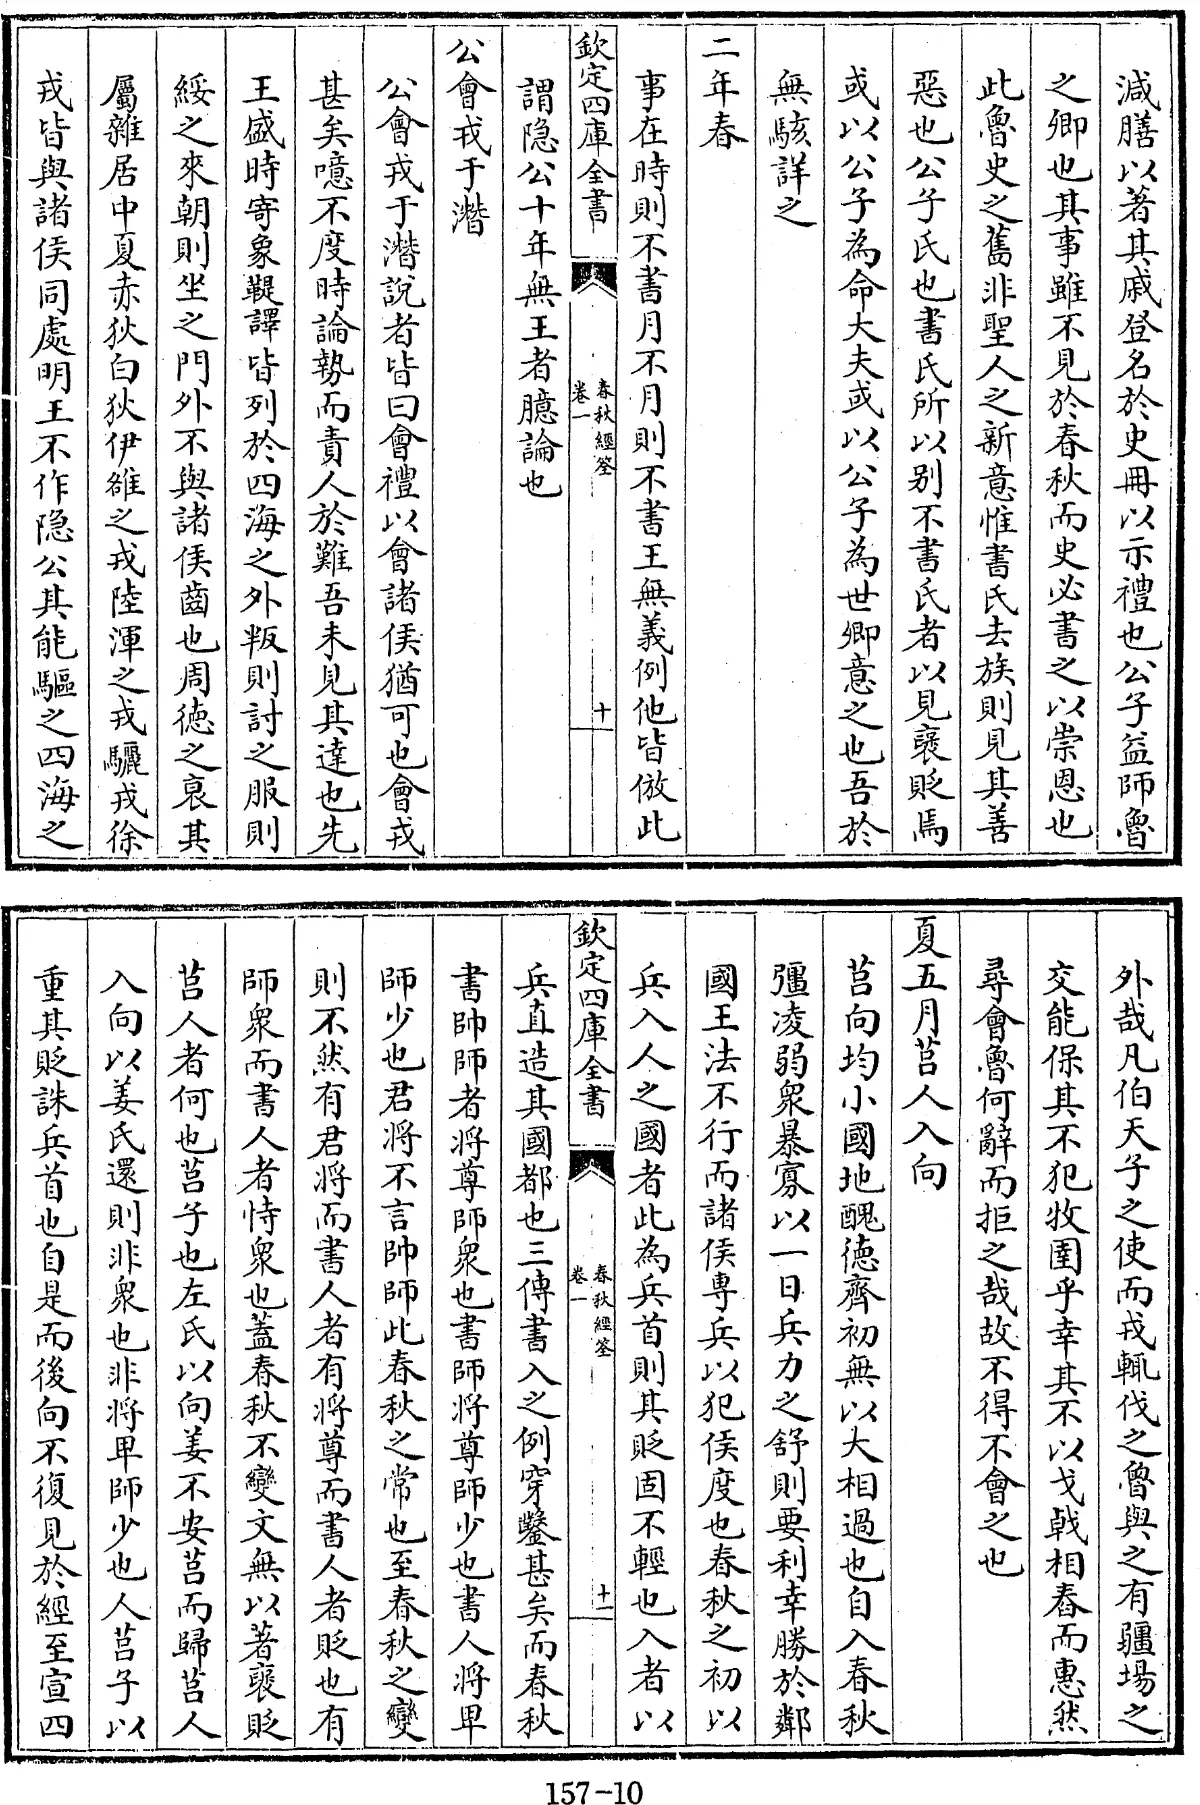 減膳以著其戚登名於史冊以示禮也公子益師魯
之卿也其事雖不見於春秋而史必書之以崇恩也
此魯史之舊非聖人之新意惟書氏去族則見其善
惡也公子氏也書氏所以别不書氏者以見褒貶焉
或以公子為命大夫或以公子為世卿意之也吾於
無駭詳之
二年春
事在時則不書月不月則不書王無義例他皆倣此
欽定四庫全書
春秋經筌
卷一
十
謂隱公十年無王者臆論也
公會戎于潛
公會戎于潛說者皆曰會禮以會諸侯猶可也會戎
甚矣噫不度時論勢而責人於難吾未見其達也先
王盛時寄象鞮譯皆列於四海之外叛則討之服則
綏之來朝則坐之門外不與諸侯齒也周德之衰其
屬雜居中夏赤狄白狄伊雒之戎陸渾之戎驪戎徐
戎皆與諸侯同處明王不作隱公其能驅之四海之
外哉凡伯天子之使而戎輒伐之魯與之有疆埸之
交能保其不犯牧圉乎幸其不以戈戟相舂而惠然
尋會魯何辭而拒之哉故不得不會之也
夏五月莒人入向
莒向均小國地醜德齊初無以大相過也自入春秋
彊凌弱衆暴寡以一日兵力之舒則要利幸勝於鄰
國王法不行而諸侯專兵以犯侯度也春秋之初以
兵入人之國者此為兵首則其貶固不輕也入者以
欽定四庫全書
春秋經筌
卷一
十一
兵直造其國都也三傳書入之例穿鑿甚矣而春秋
書帥師者將尊師衆也書師將尊師少也書人將卑
師少也君將不言帥師此春秋之常也至春秋之變
則不然有君將而書人者有將尊而書人者貶也有
師衆而書人者恃衆也蓋春秋不變文無以著褒貶
莒人者何也莒子也左氏以向姜不安莒而歸莒人
入向以姜氏還則非衆也非將卑師少也人莒子以
重其貶誅兵首也自是而後向不復見於經至宣四
157-10